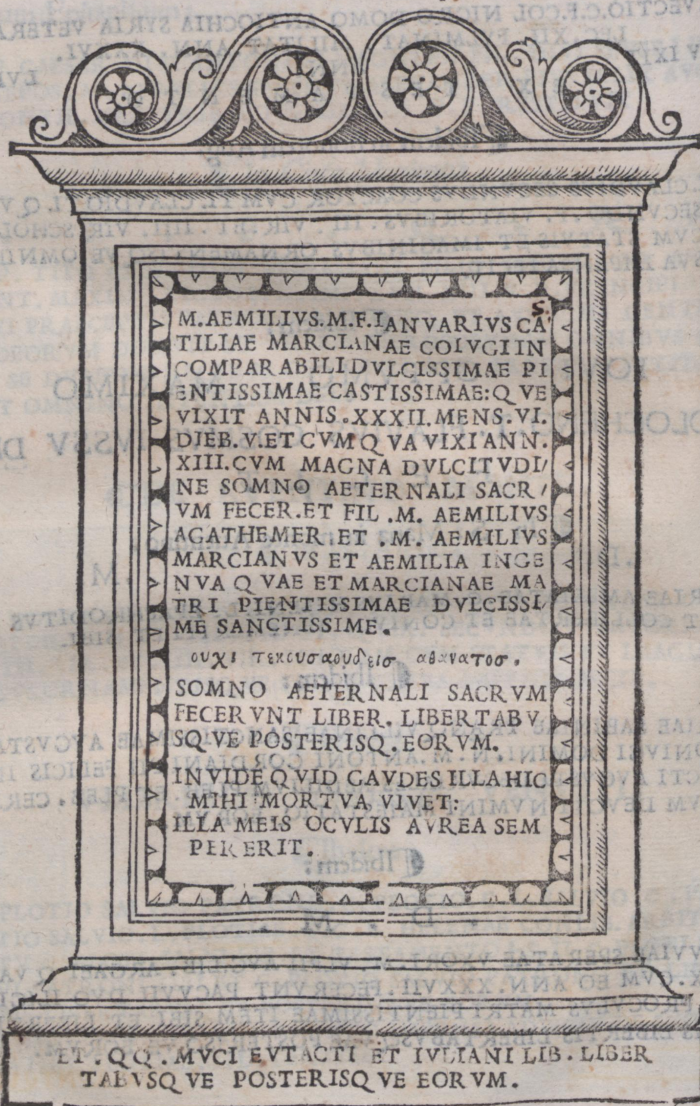 M.AEMILIVS.M.F.IANVARIVS CA
TILIAE MARCIANAE COIVGI IN
COMPARABILI DVLCISSIMAE PI
ENTISSIMAE CASTISSIMAE: QVE
VIXIT ANNIS.XXXII.MENS.VI.
DIEB.V.ET CVM QVA VIXI ANN.
XIII.CVM MAGNA DVLCITVDI/
NE SOMNO AETERNALI SACR/
VM FECER.ET FIL.M. AEMILIVS
AGATHEMER.ET .M. AEMILIVS
MARCIANVS ET AEMILIA INGE
NVA QVAE ET MARCIANAE MA
TRI PIENTISSIMAE DVLCISSI/
ME SANCTISSIME.
ουχι τεκουσαουδεισ αθανατοσ.
SOMNO AETERNALI SACRVM
FECERVNT LIBER. LIBERTABV
SQVE POSTERISQ.EORVM.
INVIDE QVID GAVDES ILLA HIC
MIHI MORTVA VIVET:
ILLA MEIS OCVLIS AVREA SEM
PER ERIT.
ET.QQ.MVCI EVTACTI ET IVLIANI LIB.LIBER
TABVSQVE POSTERISQVE EORVM.